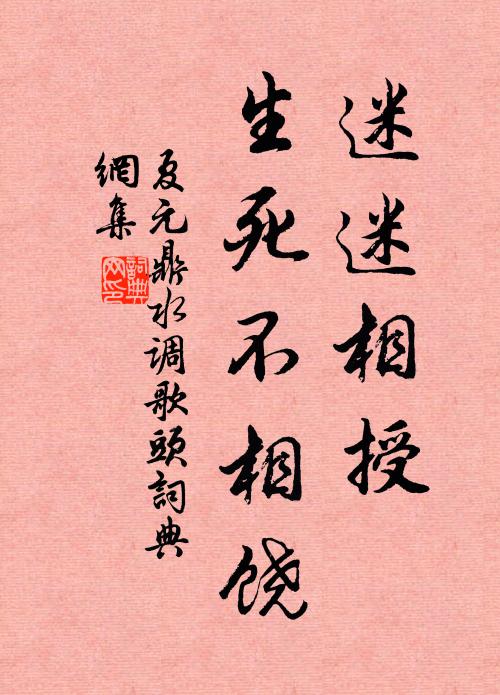 迷迷相授
生死不相饶
夏元鼎水调歌头詞典
網集
詞典網印